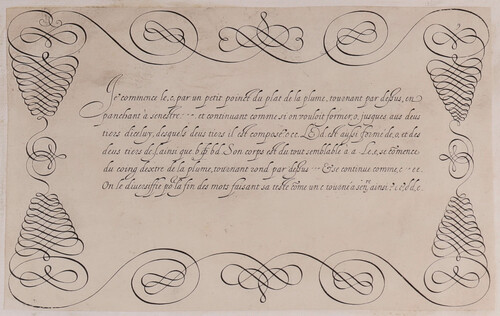 Je commence le .c. par un petit poinct du plat de la plume, tournant par dessus, en
panchant à senestre et continuant comme si on vouloit former .o. jusques aux deux
tiers d'iceluy, desquels deux tiers il est composé. Le d. est aussi formé de .c. et des
deux tiers de l. ainsi que Son corps est du tout semblable à a. Le .e. se cōmence
du coing dextre de la plume, tournant rond par dessus et se continue comme .c.
On le diversifie po la fin des mots faisant sa teste cōme un c tourné à ainsi